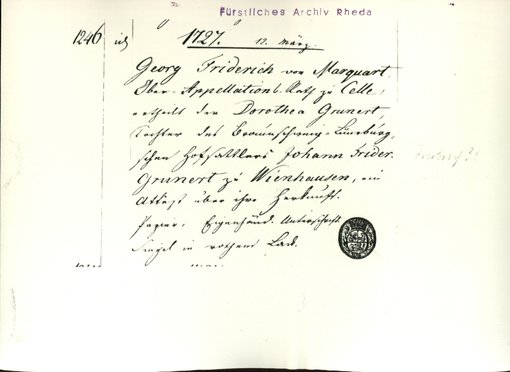 Fürstliches Archiv Rheda
1246
1727. 12. März.
Georg Friderich von Marquart,
Ober-Appellations-Rath zu Celle,
ertheilt der Dorothea Grunert,
Tochter des Braunschweig-Lüneburg-
schen Hofsattlers Johann Frider.
Grunert zu Wienhausen, ein
Attest über ihre Herkunft.
Papier, Eigenhänd. Unterschrift.
Siegel in rothem Lack.